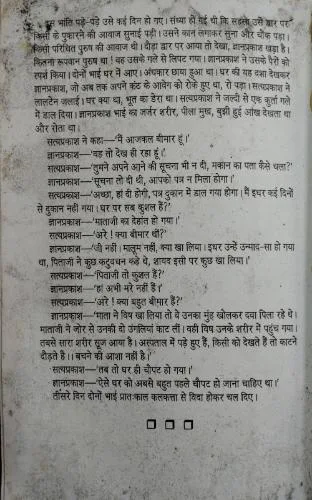 इस भांति पड़े-पड़े उसे कई दिन हो गए। संध्या हो गई थी कि सहसा उसे द्वार पर
किसी के पुकारने की आवाज सुनाई पड़ी। उसने कान लगाकर सुना और चौंक पड़ा।
किसी परिचित पुरुष की आवाज थी। दौड़ा द्वार पर आया तो देखा, ज्ञानप्रकाश खड़ा है।
कितना रूपवान पुरुष था! वह उसके गले से लिपट गया। ज्ञानप्रकाश ने उसके पैरों को
स्पर्श किया। दोनों भाई घर में आए। अंधकार छाया हुआ था। घर की यह दशा देखकर
ज्ञानप्रकाश, जो अब तक अपने कंठ के आवेग को रोके हुए था, रो पड़ा। सत्यप्रकाश ने
लालटेन जलाई। घर क्या था, भूत का डेरा था। सत्यप्रकाश ने जल्दी से एक कुर्ता गले
में डाल दिया। ज्ञानप्रकाश भाई का जर्जर शरीर, पीला मुख, बुझी हुई आंखें देखता था
और रोता था।
सत्यप्रकाश ने कहा—'मैं आजकल बीमार हूं।'
ज्ञानप्रकाश—'वह तो देख ही रहा हूं।'
सत्यप्रकाश—'तुमने अपने आने की सूचना भी न दी, मकान का पता कैसे चला?'
ज्ञानप्रकाश—'सूचना तो दी थी, आपको पत्र न मिला होगा।'
सत्यप्रकाश—'अच्छा, हां दी होगी, पत्र दुकान में डाल गया होगा। मैं इधर कई दिनों
से दुकान नहीं गया। घर पर सब कुशल हैं?'
ज्ञानप्रकाश—'माताजी का देहांत हो गया।'
सत्यप्रकाश—'अरे! क्या बीमार थीं?'
ज्ञानप्रकाश—'जी नहीं। मालूम नहीं, क्या खा लिया। इधर उन्हें उन्माद-सा हो गया
था, पिताजी ने कुछ कटुवचन कहे थे, शायद इसी पर कुछ खा लिया।'
सत्यप्रकाश—'पिताजी तो कुशल हैं?'
ज्ञानप्रकाश—'हां अभी मरे नहीं हैं।'
सत्यप्रकाश—'अरे! क्या बहुत बीमार हैं?'
ज्ञानप्रकाश—'माता ने विष खा लिया तो वे उनका मुंह खोलकर दवा पिला रहे थे।
माताजी ने जोर से उनकी दो उंगलियां काट लीं। वही विष उनके शरीर में पहुंच गया।
तबसे सारा शरीर सूज आया है। अस्पताल में पड़े हुए हैं, किसी को देखते हैं तो काटने
दौड़ते हैं।। बचने की आशा नहीं है।'
सत्यप्रकाश—'तब तो घर ही चौपट हो गया।'
ज्ञानप्रकाश—'ऐसे घर को अबसे बहुत पहले चौपट हो जाना चाहिए था।'
तीसरे दिन दोनों भाई प्रातःकाल कलकत्ता से विदा होकर चल दिए।